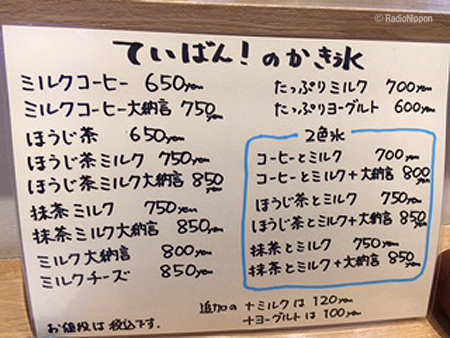 © RadioNippon
ていばん！のかき氷
ミルクコーヒー 650yen
ミルクコーヒー大納言 750yen
ほうじ茶 650yen
ほうじ茶ミルク 750yen
ほうじ茶ミルク大納言 850yen
抹茶ミルク 750yen
抹茶ミルク大納言 850yen
ミルク大納言 800yen
ミルクチーズ 850yen
お値段は税込です。
たっぷりミルク 700yen
たっぷりヨーグルト 600yen
2色氷
コーヒーとミルク 700yen
コーヒーとミルク+大納言 800yen
ほうじ茶とミルク 750yen
ほうじ茶とミルク+大納言 850yen
抹茶とミルク 750yen
抹茶とミルク+大納言 850yen
追加の +ミルクは 120yen
+ヨーグルトは 100yen